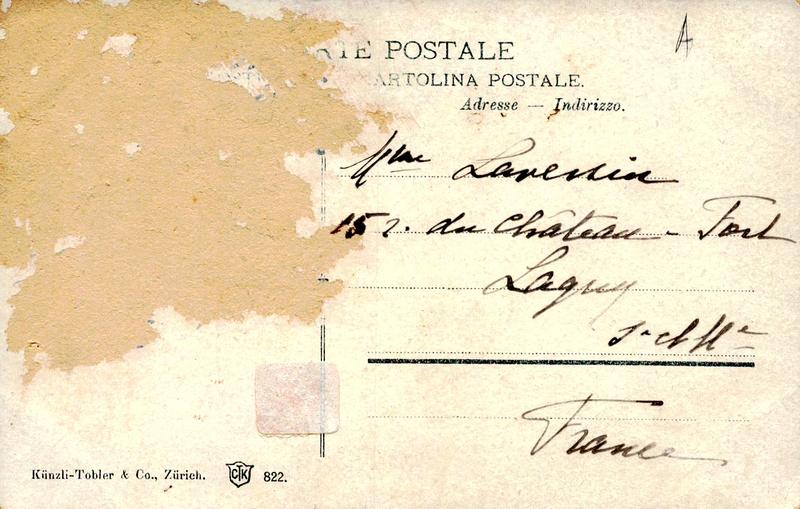 A
RTE POSTALE
ARTOLINA POSTALE.
Adresse — Indirizzo.
Mme
15 r. du Château-Fort
Lagny
S. et Mne
France
Künzli-Tobler & Co., Zürich. CTK 822.